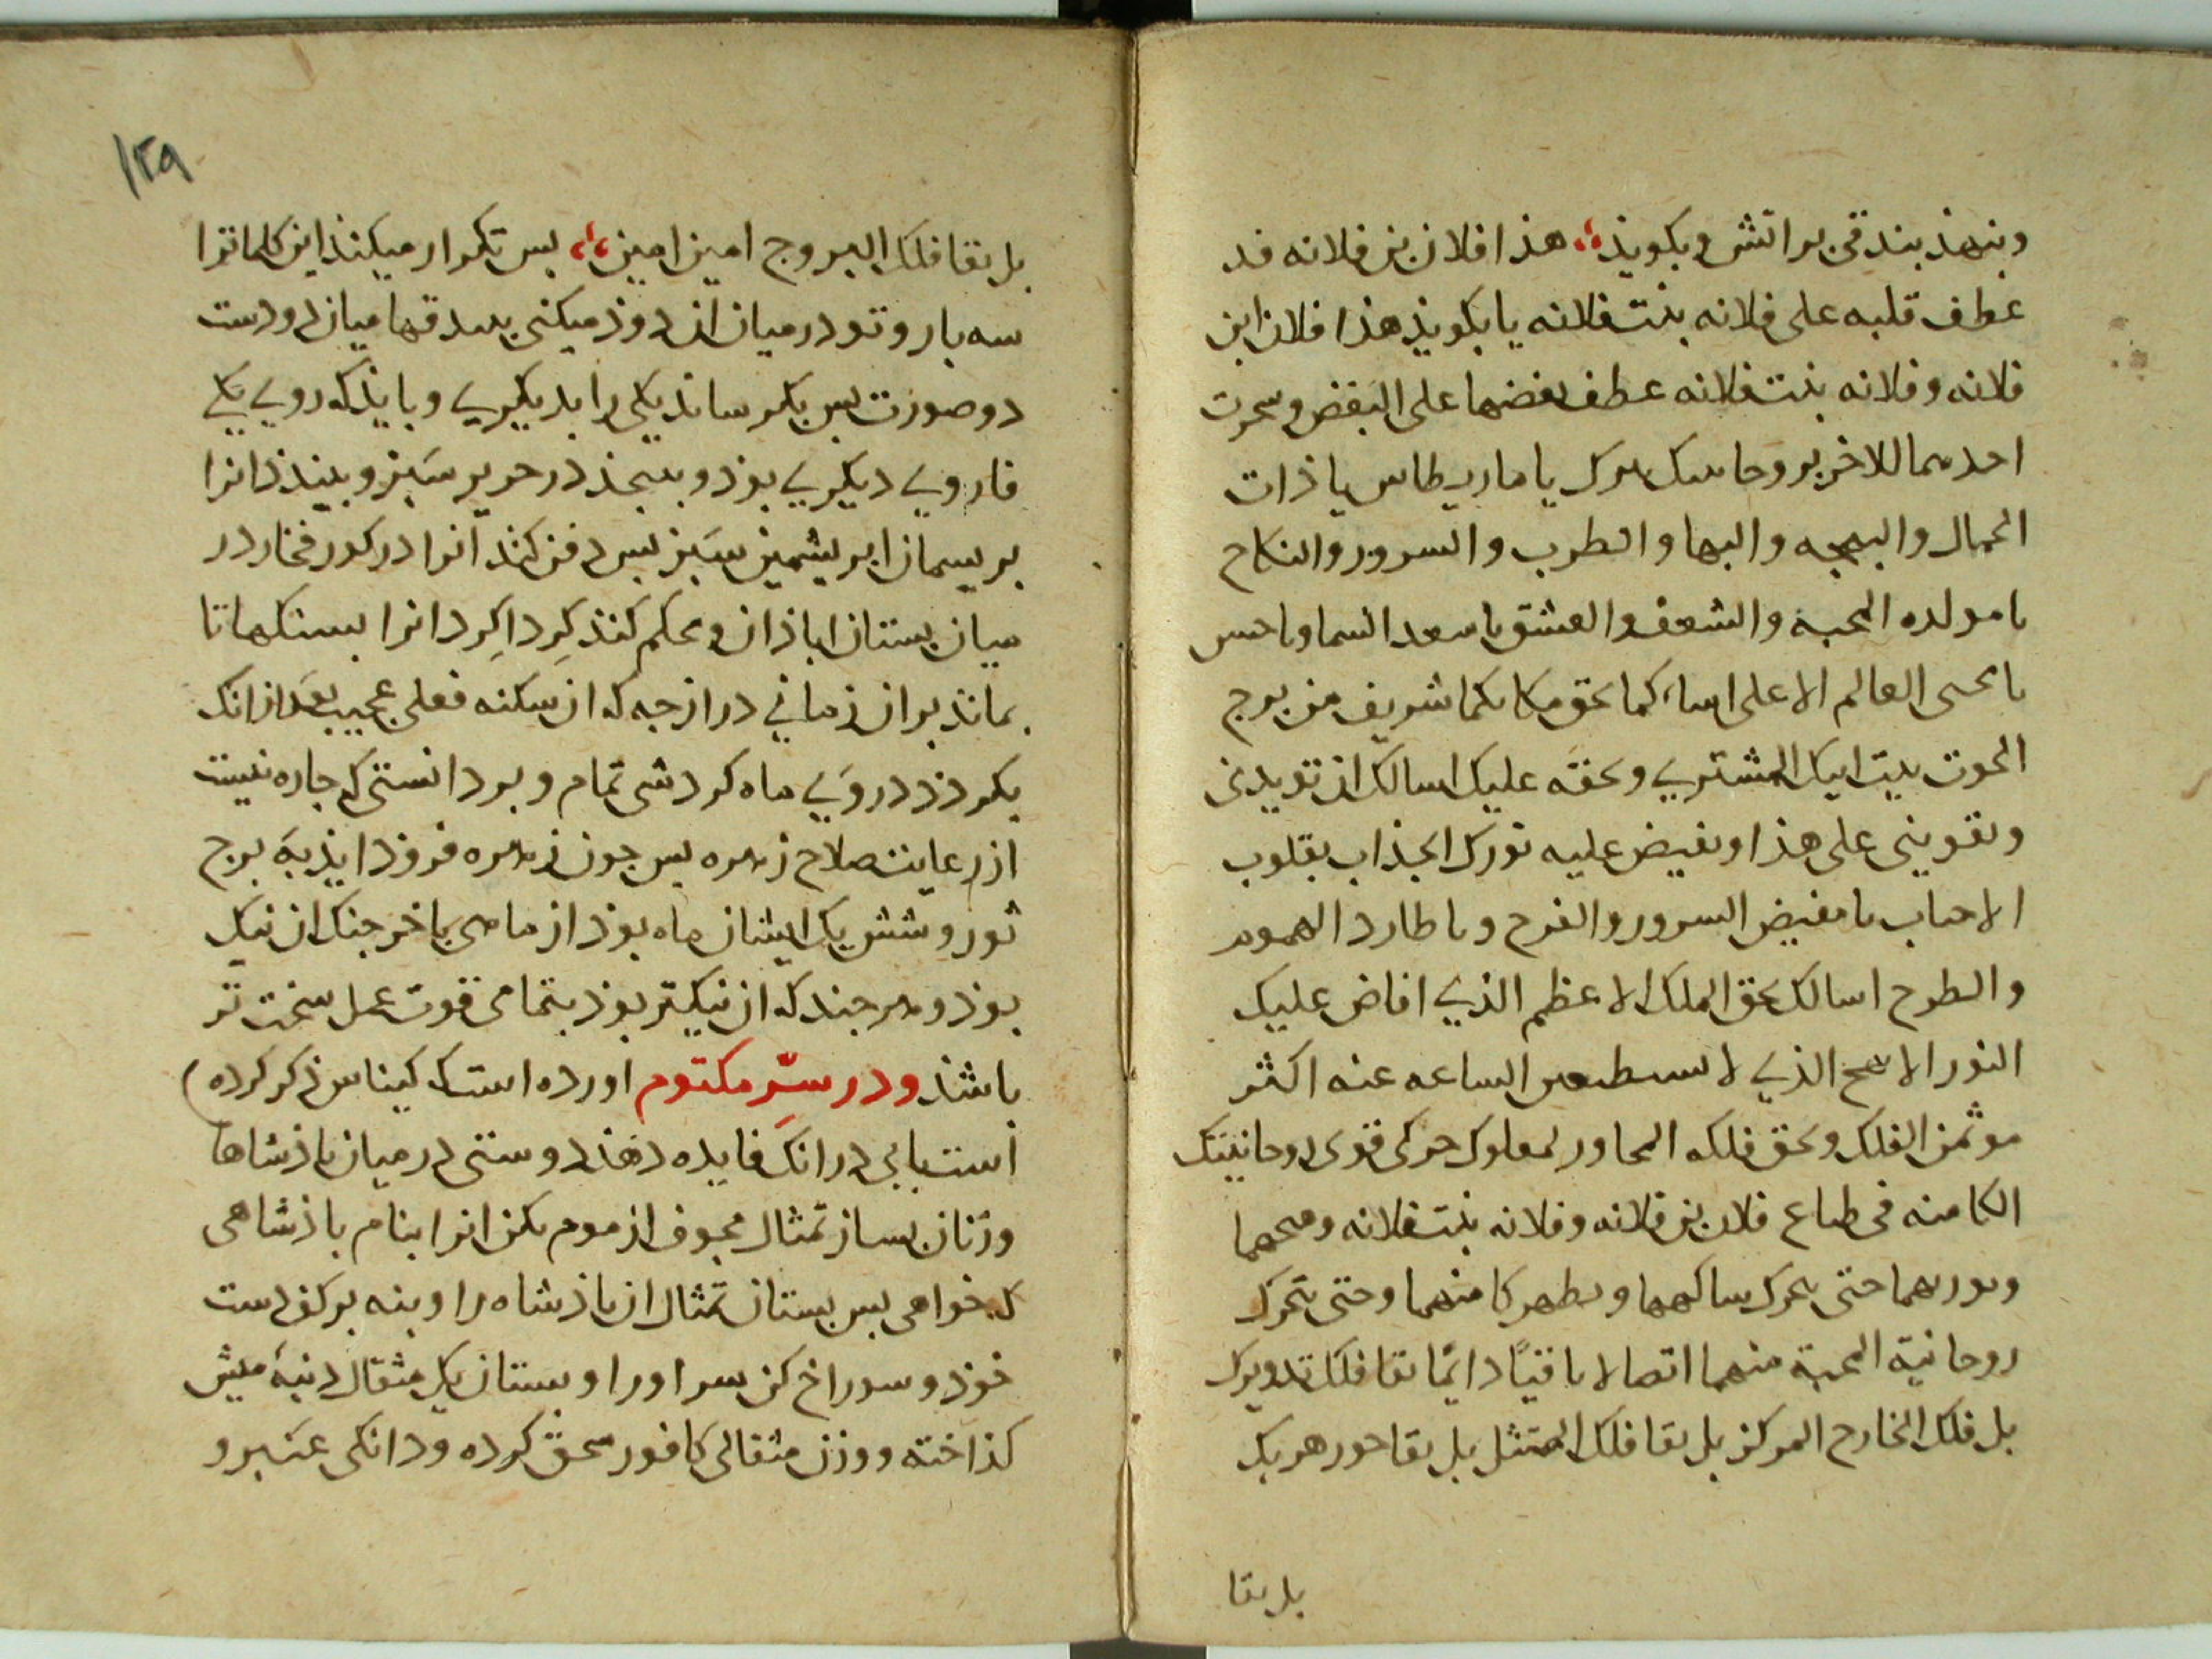 وبنهذ بندقی بر اتش و بکویذ هذا فلان بن فلانه قد
عطف قلبه علی فلانه بنت فلانه یا بکویذ هذا فلان ابن
فلانه و فلانه بنت فلانه عطف بعضهما علی البغض و سحرت
احدهما للاخر بروحا یا ماریطاس یا ذات
الجمال والبهجه والبها والطرب والسرور والنکاح
یا مولده المحبة والشعف والعشق یا سعد السما ویا
یا العالم الاعلی کما بحق مکانکما شریف من برج
الحوت بیت ابیک المشتری وبحقه علیک اسالک ان تویدنی
وتقوینی علی هذا وتفیض علیه نورک الجذاب بقلوب
الاحباب یا مفیض السرور والفرح ویا طارد الهموم
والطرح اسالک بحق الملک الاعظم الذی افاض علیک
النور الذی لا الساعه عنه اکثر
موثمن الفلک وبحق فلکه المحاور لمعلوک حرکی قوی روحانیتک
الکامنه فی طباع فلان بن فلانه و فلانه بنت فلانه
حتی ساکهما ویظهر کامنهما وحتی تحرک
روحانیة المحبة منهما اتصالا باقیًا دایمًا بقا فلک تدویرک
بل فلک الخارج المرکز بل بقا فلک الممثل بل بقا جوزهریک
بل بقا
۱۲۹
بل بقا فلک البروج امین امین بس تکرار میکنذ این کلماترا
سه بار و تو در میان ان دوذ میکنی ببندقها میان دو دست
دو صورت بس بکرسانذ یکی را بدیکری و بایذ که روی یکی
فاروی دیکری بوذ و بیجذ در حریر سبز و ببندذ انرا
بریسمان ابریشمین سبز بس دفن کنذ انرا در کور فخار در
میان بستان اباذان و محکم کنذ کرداکرد انرا بسنکها تا
بمانذ بران زمانی دراز جه که ان سکنه فعلی عجیب بعد از انک
بکردذ در روی ماه کردشی تمام و بوذ انستی که جاره نیست
از رعایت صلاح زهره بس جون زهره فروذ ایذ به برج
ثور و شش یک ایشان ماه بوذ از ماهی یا خرجنک ان نیک
بوذ و هرجند که ان نیکتر بوذ بتمامی قوت عمل سخت تر
باشذ و در سِرّ مکتوم اورده است که کیناس ذکر کرده
است بابی در انک فایده دهذ دوستی در میان باذشاها
و زنان بساز تمثال مجوف از موم بکن انرا بنام باذشاهی
که خواهی بس بستان تمثال ان باذشاه را و بنه بر کف دست
خوذ و سوراخ کن سر او را و بستان یک مثقال دنبهٔ میش
کذاخته و وزن مثقالی کافور سحق کرده و دانکی عنبر و